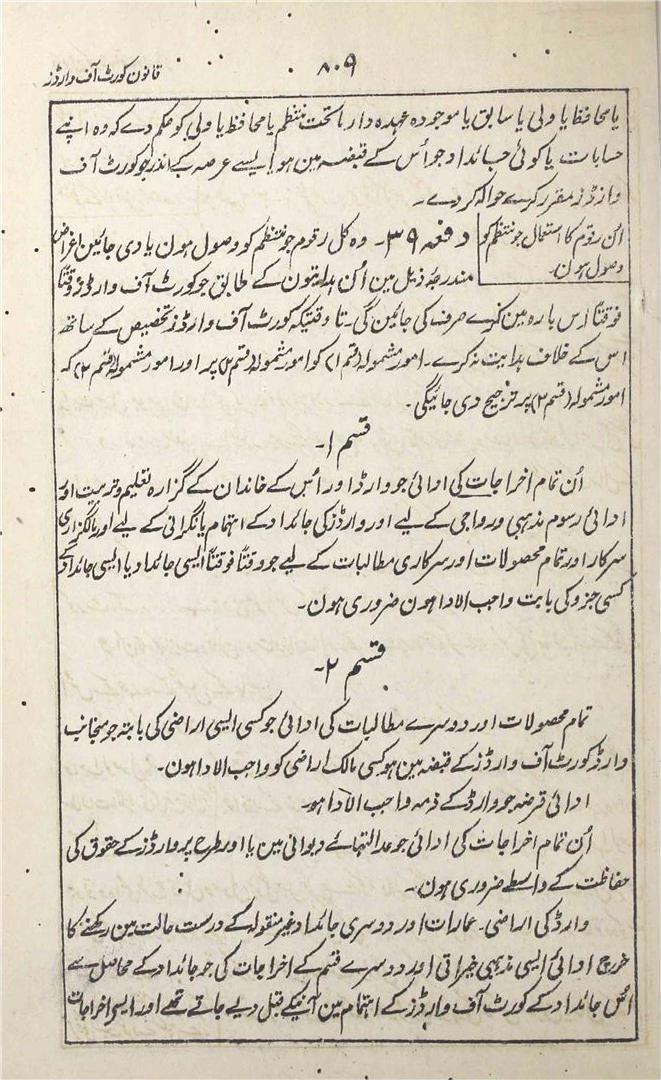 قانون کورٹ آف وارڈز
۸۰۹
یا محافظ یا ولی یا سابق یا موجودہ عہدہ دار ماتحت منتظم یا محافظ یا ولی کو حکم دے کہ وہ اپنے
حسابات یا کوئی جائداد جو اُس کے قبضہ مین ہو ایسے عرصہ کے اندر جو کورٹ آف
وارڈز مقرر کرے حوالہ کردے۔
اُن رقوم کا استعمال جو منتظم کو
وصول ہون۔
دفعہ ۳۹۔ وہ کل رقوم جو منتظم کو وصول ہون یا دی جائین اغراض
مندرجۂ ذیل مین اُن ہدایتون کے مطابق جو کورٹ آف وارڈز وقتاً
فوقتاً اس بارہ مین کرے صرف کی جائین گی۔ تا وقتیکہ کورٹ آف وارڈز تخصیص کے ساتھ
اس کے خلاف ہدایت نہ کرے۔ امور مشمولہ (قسم ۱) کو امور مشمولہ (قسم ۲) پر اور امور مشمولہ (قسم ۲) کو
امور مشمولہ (قسم ۳) پر ترجیح دی جائیگی۔
قسم ۱۔
اُن تمام اخراجات کی ادائی جو وارڈ اور اُس کے خاندان کے گزارہ تعلیم و تربیت اور
ادائی رسوم مذہبی و رواجی کے لیے اور وارڈز کی جائداد کے اہتمام یا نگرانی کے لیے اور مالگزاری
سرکار اور تمام محصولات اور سرکاری مطالبات کے لیے جو وقتاً فوقتاً ایسی جائداد یا ایسی جائداد کے
کسی جزو کی بابت واجب الادا ہون ضروری ہون۔
قسم ۲۔
تمام محصولات اور دوسرے مطالبات کی ادائی جو کسی ایسی اراضی کی بابتہ جو منجانب
وارڈ کورٹ آف وارڈز کے قبضہ مین ہو کسی مالک اراضی کو واجب الادا ہون۔
ادائی قرضہ جو وارڈ کے ذمہ واجب الادا ہو۔
اُن تمام اخراجات کی ادائی جو عدالتہائے دیوانی مین یا اور طرح پر وارڈز کے حقوق کی
حفاظت کے واسطے ضروری ہون۔
وارڈ کی اراضی۔ عمارات اور دوسری جائداد غیر منقولہ کے درست حالت مین رکھنے کا
خرچ ادائی ایسی مذہبی خیراتی اور دوسرے قسم کے اخراجات کی جو جائداد کے محاصل سے
اُس جائداد کے کورٹ آف وارڈز کے اہتمام مین آنیکے قبل دیے جاتے تھے اور ایسی اخراجات